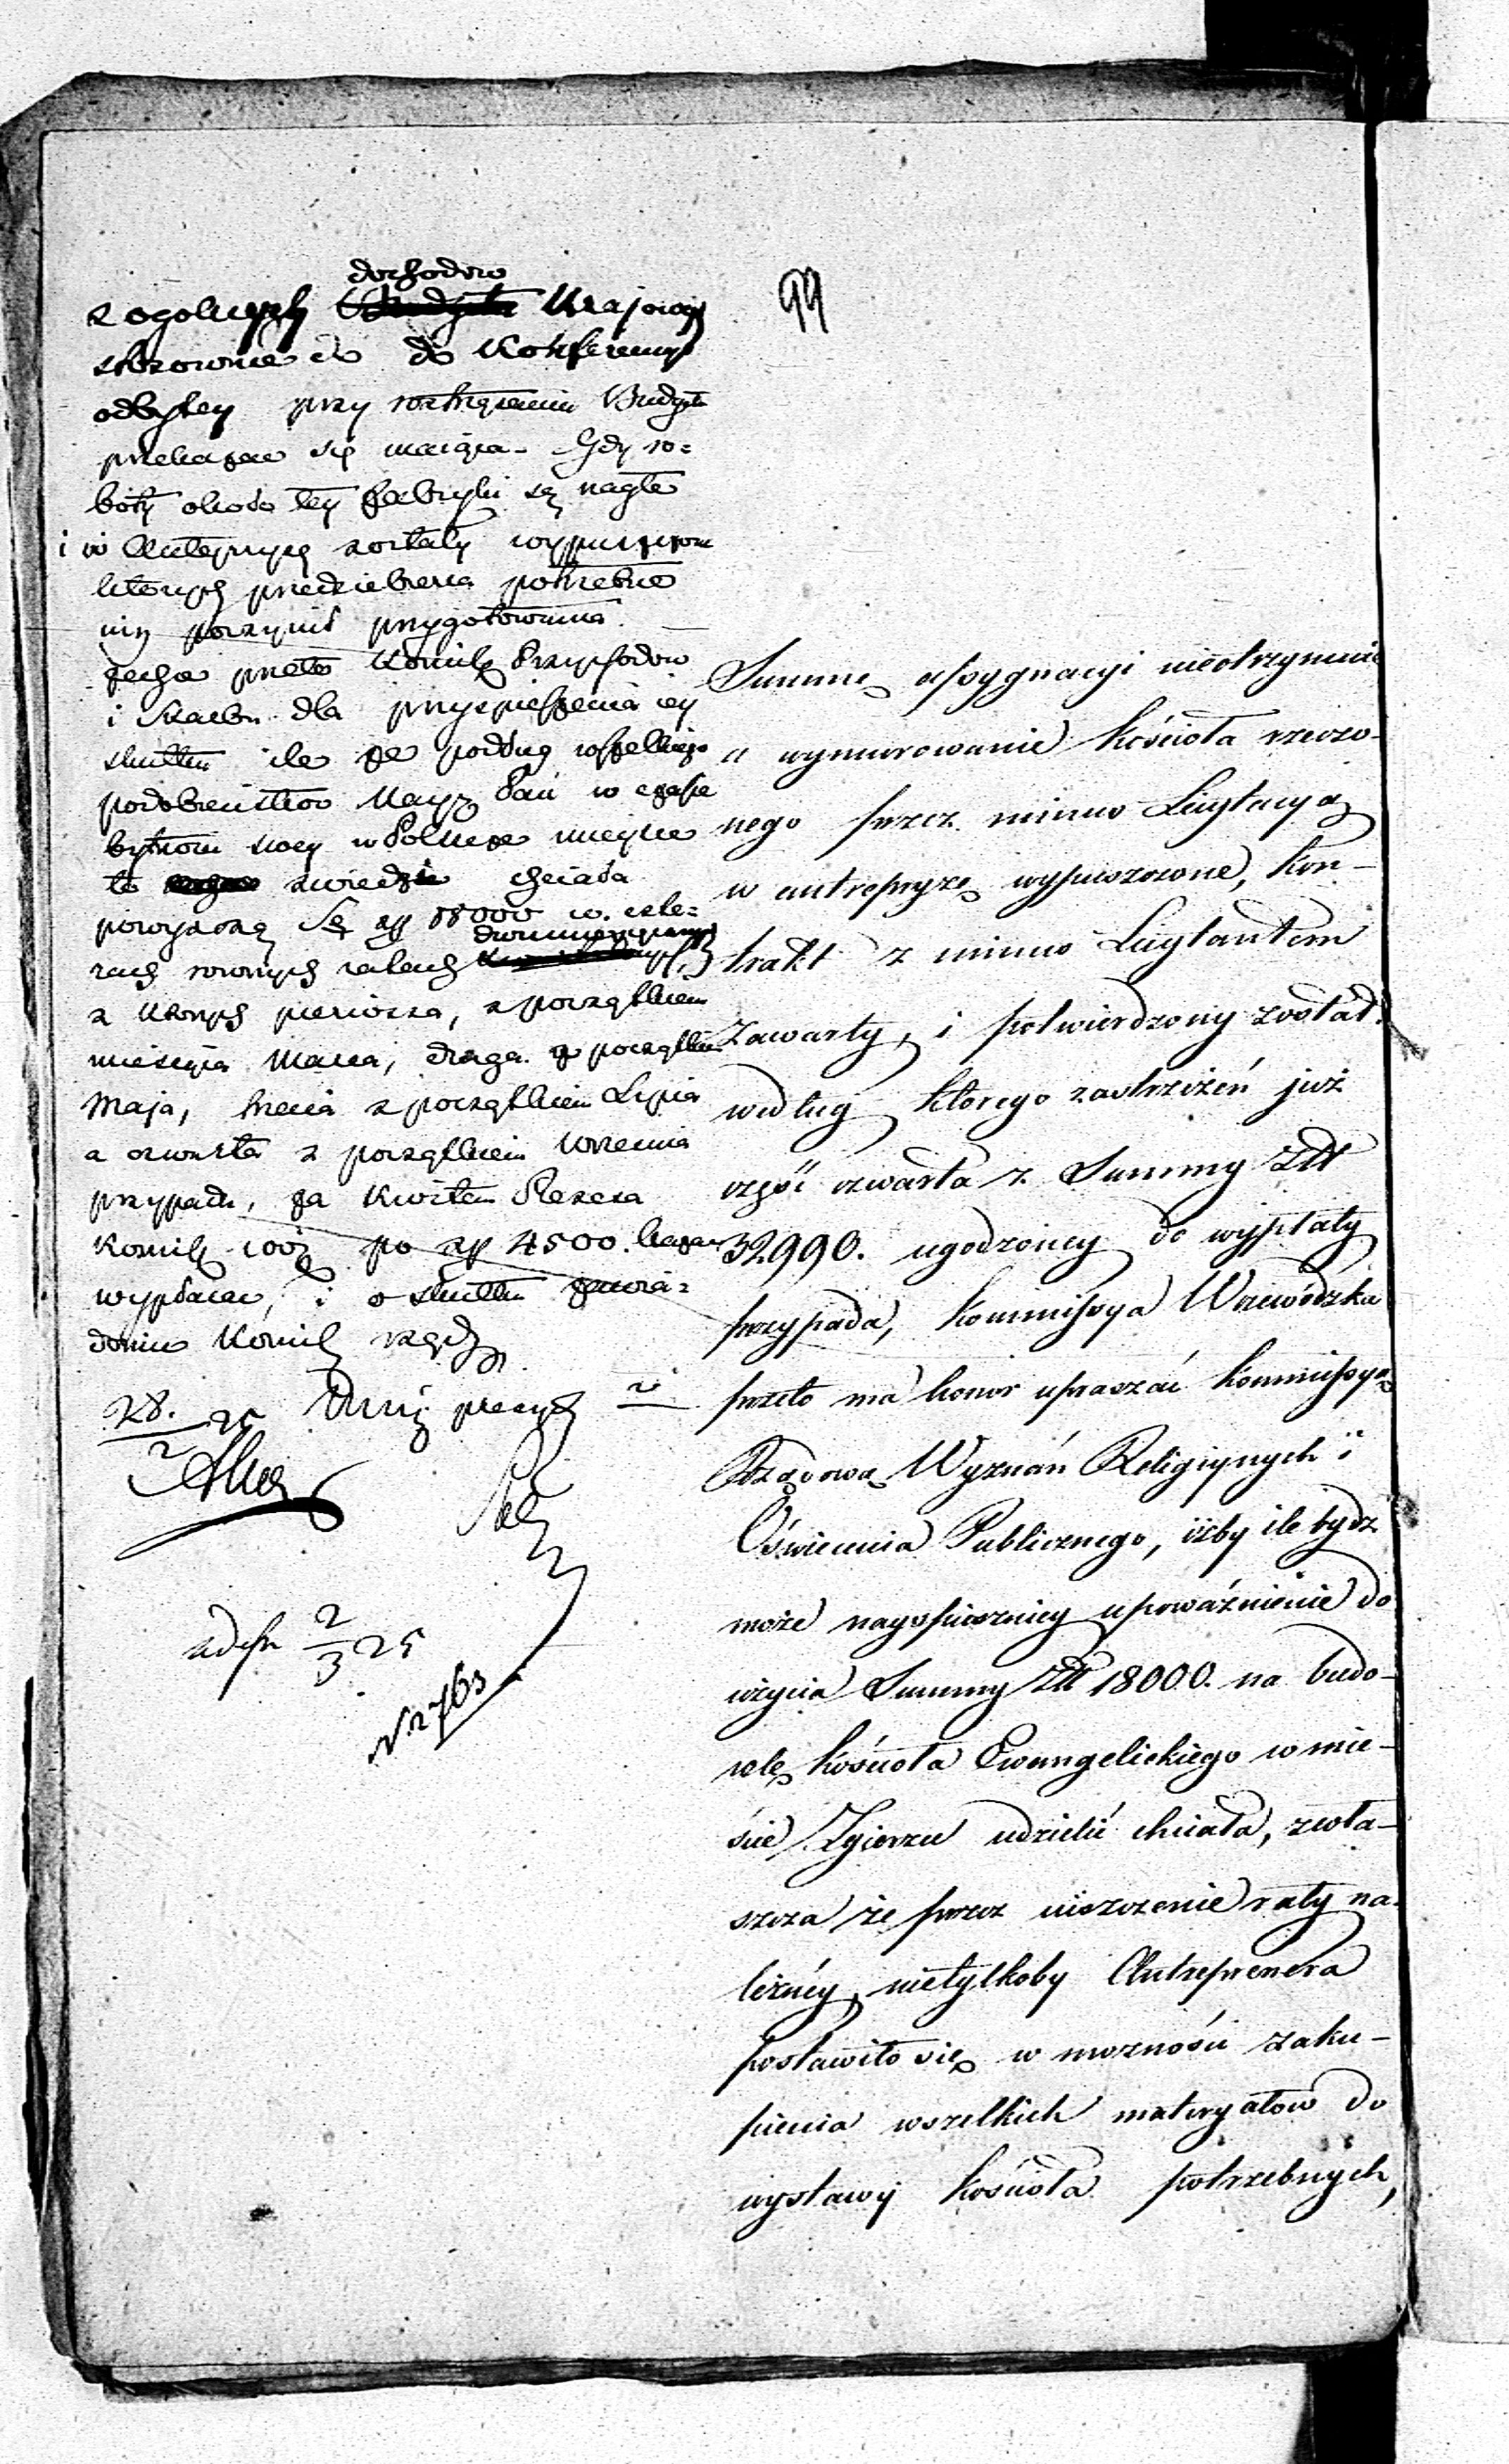 99
dochodów
z ogolnych Budżetu Krajowych
stosownie do Konferencyi
odbytey przy roztrząsaniu Budżetu
przekazać się maiące. Gdy ro=
boty około tey fabryki są nagłe
i w Antepryzę zostały wypuszczone
których przedsiebierca potrzebne
przygotowania
zechce przeto Komis Przychodow
i Skarbu dla przyspieszenia iey
skutku ile że podług wszelkiego
podobieństwa Nayj Pan w czasie
bytności swey w Polszcze mieysce
to zwiedzić chciała
powyższą Sę zp 18000 w czte=
rech rownych ratach dwumiesięcznych
z ktorych pierwsza, z początkiem
miesiąca Marca, druga z początkiem
Maja, trzecia z początkiem Lipca
a czwarta z początkiem Września
przypada, za kwitem Prezesa
Komis Wdz po zp 4500. kazać
wypłacać, i o skutku zawia=
domić Komis rządz
28.
2 25
zdesp 2
3 25
N. 2763
Summę assygnacyi nieotrzymuie
a wymurowanie kościoła rzeczo-
nego przez minus Licytacyą
w antrepryzę wypuszczone, kon-
trakt z minus Licytantem
zawarty, i potwierdzony został.
według którego zastrzeżeń już
część czwarta z Summy Złł
32990. ugodzoney do wypłaty
przypada, Kommissya Woiewódzka
przeto ma honor upraszać Kommissyą
Rządową Wyznań Religiynych i
Oświecenia Publicznego, iżby ile bydz
może nayspieszniey upoważnienie do
użycia Summy Złł 18000. na budo-
wlę kościoła Ewangelickiego w mie-
ście Zgierzu udzielić chciała, zwła-
szcza że przez uiszczenie raty na-
leżnéy nietylkoby Antreprenera
postawiło się w możności zaku-
pienia wszelkich materyałow do
wystawy kościoła potrzebnych,